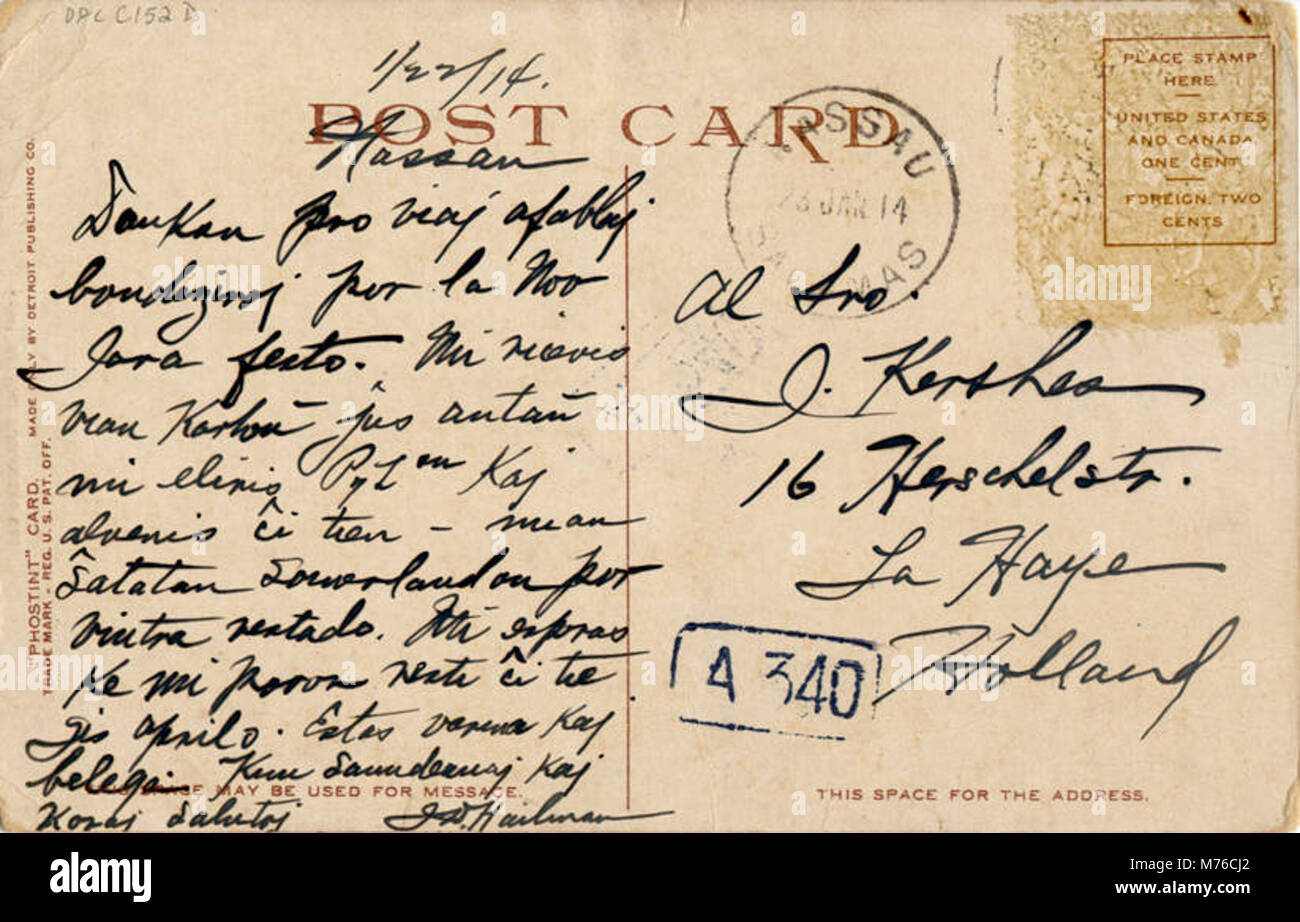 DPC C152 D
1/22/14.
POST CARD
Nassau
Dankon pro viaj afablaj
bondeziroj por la Nov
Jara festo. Mi ricevis
vian karton ĵus antaŭ
mi eliris kaj
alvenis ĉi tien –
por
vintra restado. Mi esperas
ke mi povos resti ĉi tie
ĝis aprilo. Estas varma kaj
belega. Kun kaj
koraj salutoj
"PHOSTINT" CARD. MADE ONLY BY DETROIT PUBLISHING CO.
TRADE MARK - REG. U. S. PAT. OFF.
SPACE MAY BE USED FOR MESSAGE.
NASSAU
23 JAN 14
BAHAMAS
PLACE STAMP
HERE
UNITED STATES
AND CANADA
ONE CENT
FOREIGN, TWO
CENTS
Al Sro.
J.
16 Herschelstr.
La Haye
Holland
A 340
THIS SPACE FOR THE ADDRESS.
alamy
alamy
Image ID: M76CJ2
www.alamy.com